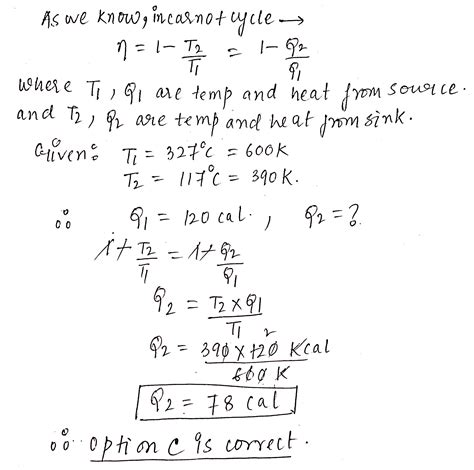 As we know, in carnot cycle →
η = 1 - T2/T1 = 1 - Q2/Q1
where T1, Q1 are temp and heat from source.
and T2, Q2 are temp and heat from sink.
Given: T1 = 327°C = 600K
T2 = 117°C = 390K.
∴ Q1 = 120 cal. , Q2 = ?
1 + T2/T1 = 1 + Q2/Q1
Q2 = T2 × Q1/T1
Q2 = 390 × 120 K cal/600 K 2
Q2 = 78 cal
∴ option C is correct.